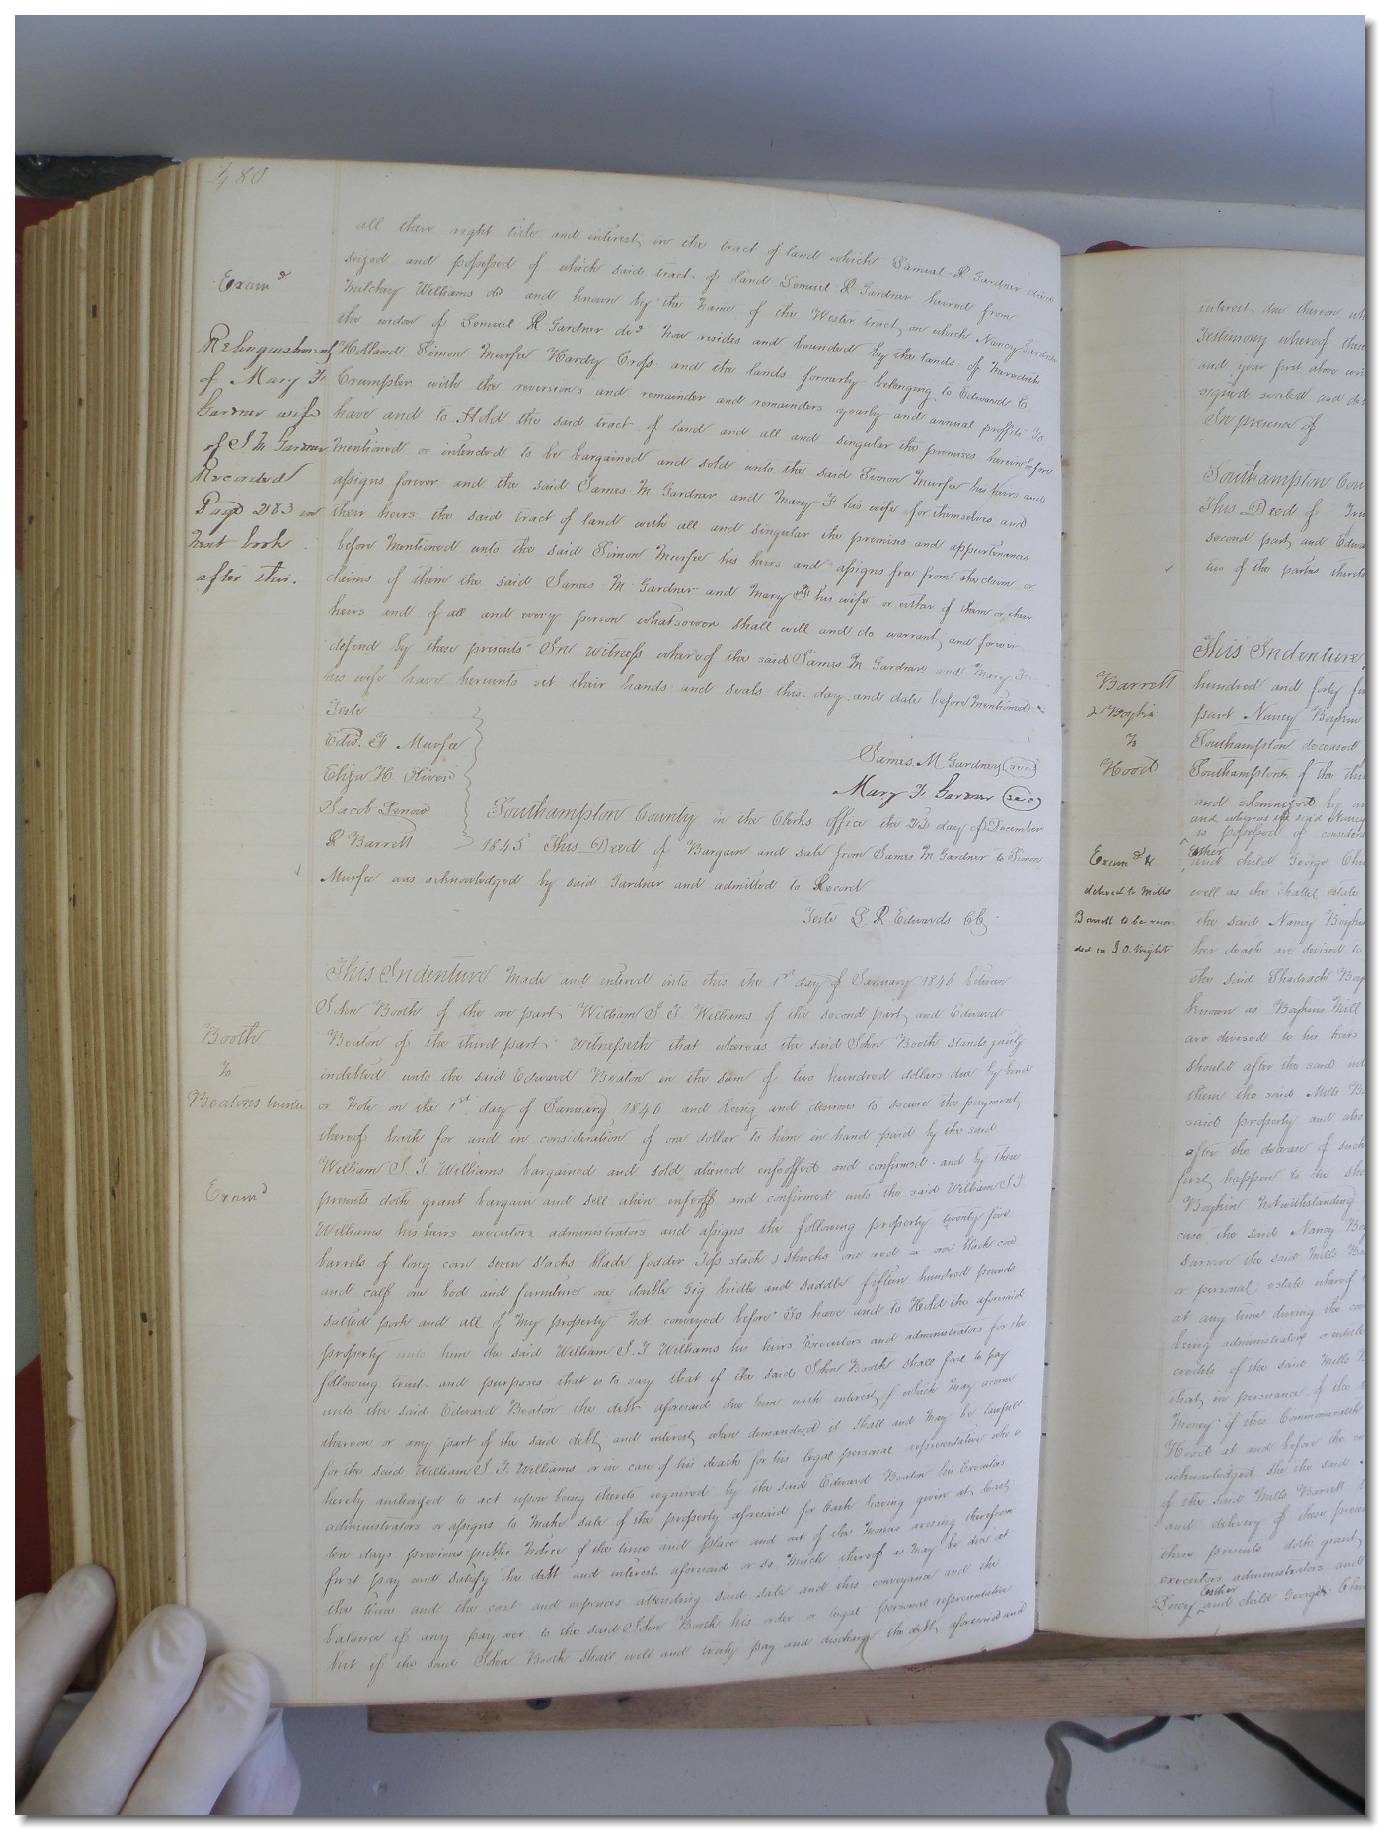 480
all their right title and interest in the tract of land which Samuel R Gardner died
seized and possessed of which said tract of land Samuel R Gardner heired from
Williams and known by the name of the Wester tract, on which Nancy Gardner
the widow of Samuel R Gardner decd now resides and bounded by the lands of Meredith
Holland Simon Murfee Hardy Cross and the lands formerly belonging to Edward C
Crumpler with the reversions and remainder and remainders yearly and annual proffits To
have and to Hold the said tract of land and all and singular the premises herein before
mentioned or intended to be bargained and sold unto the said Simon Murfee his heirs and
assigns forever and the said James M Gardner and Mary F his wife for themselves and
their heirs the said tract of land with all and singular the premises and appurtenances
before mentioned unto the said Simon Murfee his heirs and assigns free from the claim or
claims of them the said James M Gardner and Mary F his wife or either of them or their
heirs and of all and every person whatsoever shall will and do warrant and forever
defend by these presents In witness whereof the said James M Gardner and Mary F
his wife have hereunto set their hands and seals this day and date before mentioned
Examd
Relinquishment
of Mary F
Gardner wife
of J M Gardner
Recorded
Page 283 in
next book
after this.
Teste
Edwd. F Murfee
Eliza H Oliver
Jacob Senow
R Barrett
James M Gardner (seal)
Mary F Gardner (seal)
Southampton County in the Clerks office the 22 day of December
1845 This Deed of Bargain and sale from James M Gardner to Simon
Murfee was acknowledged by said Gardner and admitted to Record
Teste L R Edwards CC
Booth
To
Beatons trustee
Examd
This Indenture made and entered into this the 1st day of January 1846 between
John Booth of the one part, William S. G. Williams of the second part, and Edward
Beaton of the third part. Witnesseth that whereas the said John Booth stands justly
indebted unto the said Edward Beaton in the sum of two hundred dollars due by bond
or Note on the 1st day of January 1846 and being and desirous to secure the payment,
thereof hath for and in consideration of one dollar to him in hand paid by the said
William S. G. Williams bargained and sold aliened enfeoffed and confirmed and by these
presents doth grant bargain and sell alien enfeoff and confirmed unto the said William S G
Williams his heirs executors administrators and assigns the following property twenty five
barrels of long corn seven stacks blade fodder Top stack & shucks one red cow one black cow
and calf one bed and furniture one double gig bridle and saddle fifteen hundred pounds
salted pork and all of my property not conveyed before To have and to Hold the aforesaid
property unto him the said William S. G Williams his heirs Executors and administrators for the
following trust and purposes that is to say that if the said John Booth shall fail to pay
unto the said Edward Beaton the debt aforesaid due him with interest, which may accrue
thereon or any part of the said debt, and interest, when demanded it shall and may be lawfull
for the said William S. G. Williams or in case of his death for his legal personal representative who is
hereby authorized to act upon being thereto required by the said Edward Beaton his Executors
administrators or assigns to make sale of the property aforesaid for Cash having given at least
ten days previous public notice of the time and place and out of the monies arising therefrom
first pay and satisfy the debt and interest aforesaid or so much thereof as may be due at
the time and the cost and expences attending said sale and this conveyance and the
balance if any pay over to the said John Booth his order or legal personal representative
but if the said John Booth shall well and truly pay and discharge the debt, aforesaid and
interest due thereon
Testimony whereof
and year first above
signed sealed and
In presence of
Southampton
This Deed of
second part, and
of the parties
Barrett
& Boykin
To
Hood
Examd &
delivered to Mills
Barrett to be recor
ded in I. O. Wright
This Indenture
hundred and forty
part Nancy Boykin
Southampton deceased
Southampton of the
and by
and whereas the said Nancy
is possessed of
Esther
and child George
well as the chattel estate
the said Nancy Boykin
her death are devised to
the said Shadrach
known as Boykins Mill
are devised to his heirs
should after the said
them the said Mills
said property and also
after the decease of such
first happen to the
Boykin Notwithstanding
case the said Nancy
survive the said Mills
or personal estate whereof
at any time during the
being administrator
credits of the said Mills
that in persuance of the
Money of this Commonwealth
Hood at and before the
acknowledged the the said
of the said Mills Barrett
and delivery of these
these presents doth grant
executors administrators and
Esther
Lucy and child George